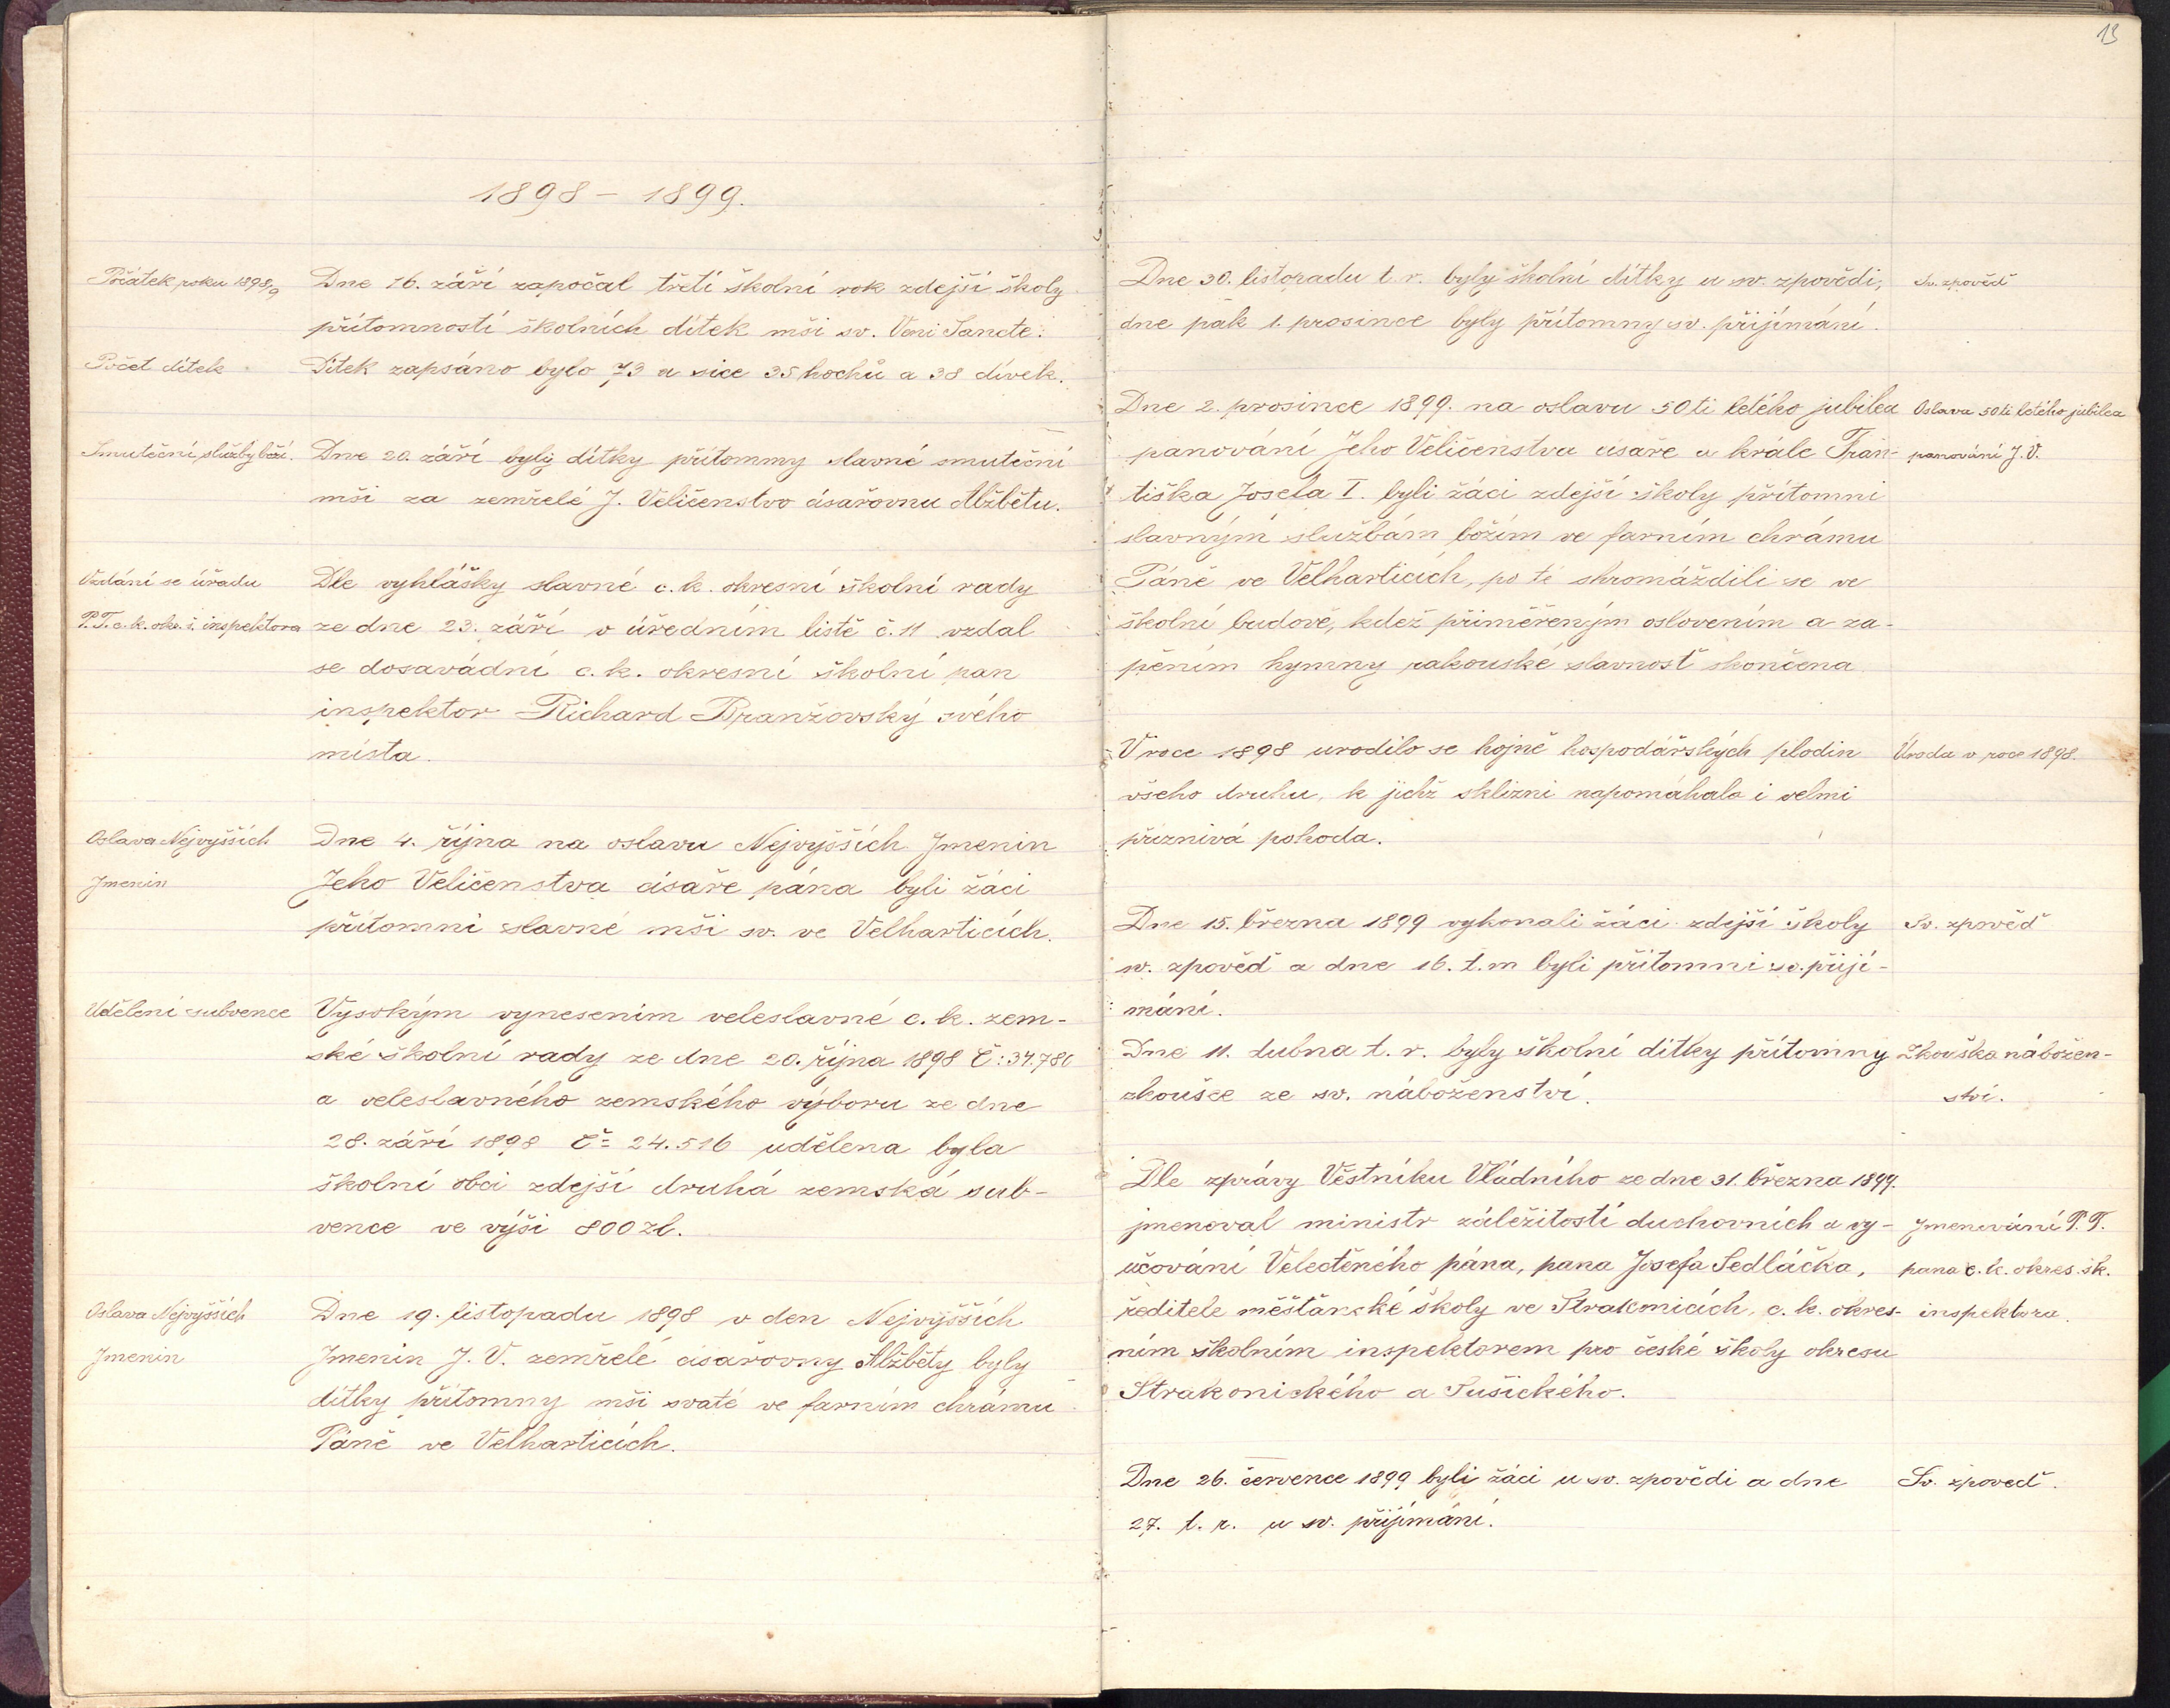 13
1898 – 1899.
Počátek roku 1898/9
Dne 16. září započal třetí školní rok zdejší školy
přítomností školních dítek mši sv. Veni Sancte.
Počet dítek
Dítek zapsáno bylo 73 a sice 35 hochů a 38 dívek.
Smuteční služby boží.
Dne 20. září byly dítky přítomny slavné smuteční
mši za zemřelé J. Veličenstvo císařovnu Alžbětu.
Vzdání se úřadu
P.T. c. k. okr. š. inspektora
Dle vyhlášky slavné c. k. okresní školní rady
ze dne 23. září v úředním listě č. 11 vzdal
se dosavádní c. k. okresní školní pan
inspektor Richard Branžovský svého
místa.
Oslava Nejvyšších
Jmenin
Dne 4. října na oslavu Nejvyšších Jmenin
Jeho Veličenstva císaře pána byli žáci
přítomni slavné mši sv. ve Velharticích.
Udělení subvence
Vysokým vynesením veleslavné c. k. zem-
ské školní rady ze dne 20. října 1898 Č: 34.786
a veleslavného zemského výboru ze dne
28. září 1898 Č= 24.516 udělena byla
školní obci zdejší druhá zemská sub-
vence ve výši 800 zl.
Oslava Nejvyšších
Jmenin
Dne 19. listopadu 1898 v den Nejvyšších
Jmenin J. V. zemřelé císařovny Alžběty byly
dítky přítomny mši svaté ve farním chrámu
Páně ve Velharticích.
Dne 30. listopadu t. r. byly školní dítky u sv. zpovědi,
dne pak 1. prosince byly přítomny sv. přijímání.
Sv. zpověď
Dne 2. prosince 1899. na oslavu 50ti letého jubilea
panování Jeho Veličenstva císaře a krále Fran-
tiška Josefa I. byli žáci zdejší školy přítomni
slavným službám božím ve farním chrámu
Páně ve Velharticích, po té shromáždili se ve
školní budově, kdež přiměřeným oslovením a za-
pěním hymny rakouské slavnosť skončena.
Oslava 50ti letého jubilea
panování J. V.
V roce 1898 urodilo se hojně hospodářských plodin
všeho druhu, k jichž sklizni napomáhala i velmi
příznivá pohoda.
Úroda v roce 1898.
Dne 15. března 1899 vykonali žáci zdejší školy
sv. zpověď a dne 16. t. m byli přítomni sv. přijí-
mání.
Sv. zpověď
Dne 11. dubna t. r. byly školní dítky přítomny
zkoušce ze sv. náboženství.
Zkouška nábožen-
ství.
Dle zprávy Věstníku Vládního ze dne 31. března 1899.
jmenoval ministr záležitostí duchovních a vy-
učování Velectěného pána, pana Josefa Sedláčka,
ředitele měšťanské školy ve Strakonicích, c. k. okres-
ním školním inspektorem pro české školy okresu
Strakonického a Sušického.
Jmenování P. T.
pana c. k. okres. šk.
inspektora.
Dne 26. července 1899 byli žáci u sv. zpovědi a dne
27. t. r. u sv. přijímání.
Sv. zpověď.